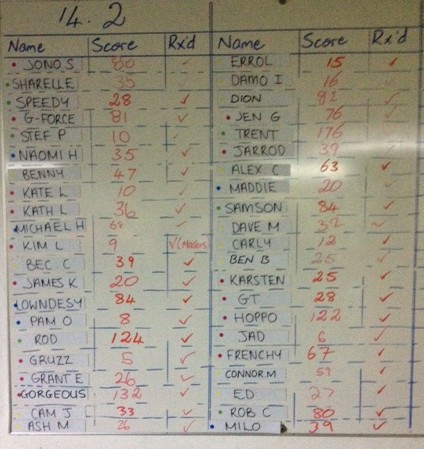 14.2
Name Score Rx'd Name Score Rx'd
JONO S 80 ✓ ERROL 15 ✓
SHARELLE 35 DAMO I 16
SPEEDY 28 ✓ DION 82 ✓
G-FORCE 81 ✓ JEN G 76 ✓
STEF P 10 ✓ TRENT 176 ✓
NAOMI H 35 ✓ JARROD 39 ✓
BENNY 47 ✓ ALEX C 63 ✓
KATE L 10 ✓ MADDIE 20 ✓
KATH L 36 ✓ SAMSON 84 ✓
MICHAEL H 68 ✓ DAVE M 32 ✓
KIM L 9 ✓(Masters CARLY 12 ✓
BEC C 39 ✓ BEN B 25 ✓
JAMES K 20 ✓ KARSTEN 25 ✓
LOWNDESY 84 ✓ GT 28 ✓
PAM O 8 ✓ HOPPO 122 ✓
ROD 124 ✓ JAD 6 ✓
GRUZZ 5 ✓ FRENCHY 67 ✓
GRANT E 26 ✓ CONNOR M 59 ✓
GORGEOUS 132 ✓ ED 27 ✓
CAM J 33 ✓ ROB C 80 ✓
ASH M 26 ✓ MILO 39 ✓